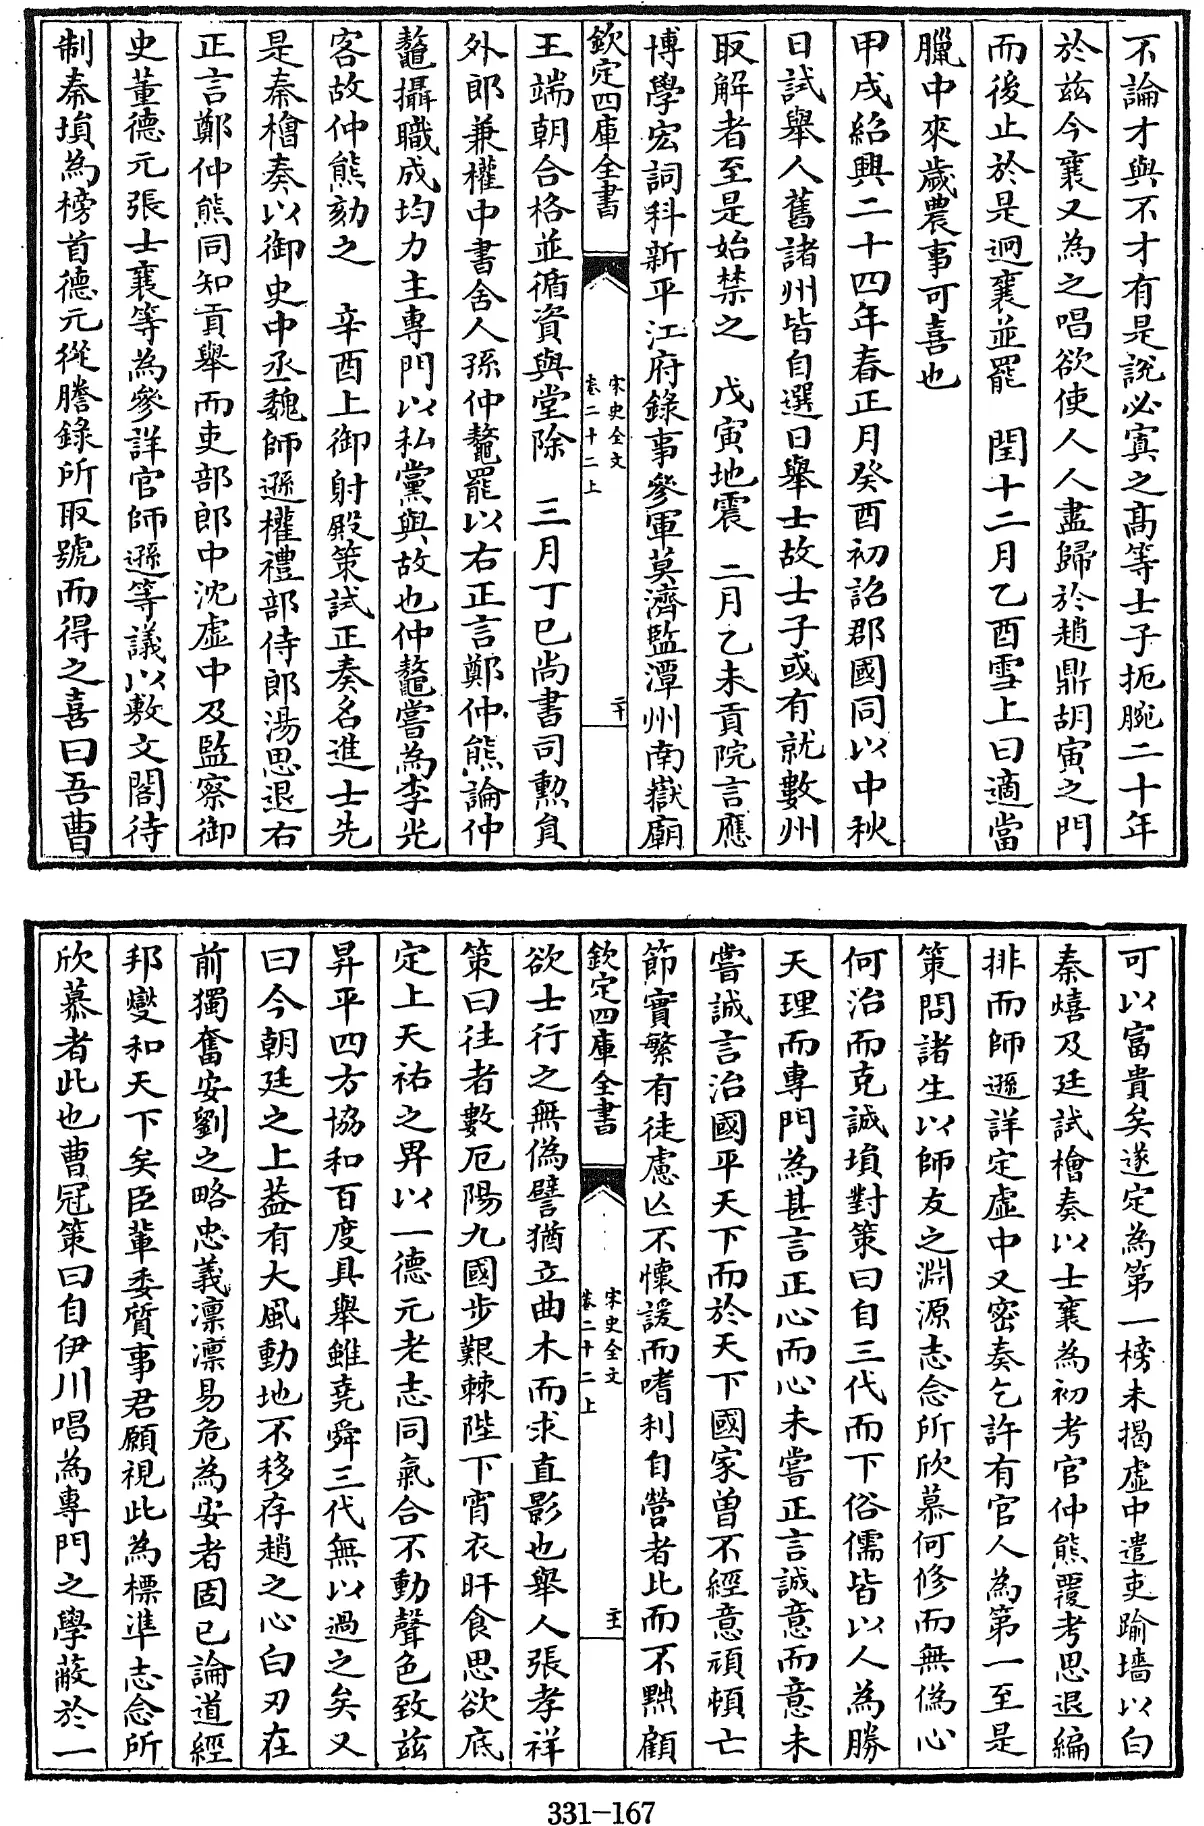 不論才與不才有是說必寘之高等士子扼腕二十年
於兹今襄又為之唱欲使人人盡歸於趙鼎胡寅之門
而後止於是迥襄並罷　閏十二月乙酉雪上曰適當
臘中來歲農事可喜也
甲戌紹興二十四年春正月癸酉初詔郡國同以中秋
日試舉人舊諸州皆自選日舉士故士子或有就數州
取解者至是始禁之　戊寅地震　二月乙未貢院言應
博學宏詞科新平江府錄事參軍莫濟監潭州南嶽廟
欽定四庫全書
宋史全文
卷二十二上
二十
王端朝合格並循資與堂除　三月丁巳尚書司勲員
外郎兼權中書舍人孫仲鼇罷以右正言鄭仲熊論仲
鼇攝職成均力主專門以私黨與故也仲鼇嘗為李光
客故仲熊劾之　辛酉上御射殿策試正奏名進士先
是秦檜奏以御史中丞魏師遜權禮部侍郎湯思退右
正言鄭仲熊同知貢舉而吏部郎中沈虛中及監察御
史董德元張士襄等為參詳官師遜等議以敷文閣待
制秦塤為榜首德元從謄錄所取號而得之喜曰吾曹
可以富貴矣遂定為第一榜未揭虛中遣吏踰墻以白
秦熺及廷試檜奏以士襄為初考官仲熊覆考思退編
排而師遜詳定虛中又密奏乞許有官人為第一至是
策問諸生以師友之淵源志念所欣慕何修而無偽心
何治而克誠塤對策曰自三代而下俗儒皆以人為勝
天理而專門為甚言正心而心未嘗正言誠意而意未
嘗誠言治國平天下而於天下國家曾不經意頑頓亡
節實繁有徒慮亾不懷諼而嗜利自營者此而不黜顧
欽定四庫全書
宋史全文
卷二十二上
二十一
欲士行之無偽譬猶立曲木而求直影也舉人張孝祥
策曰往者數厄陽九國步艱棘陛下宵衣旰食思欲底
定上天祐之畀以一德元老志同氣合不動聲色致兹
昇平四方協和百度具舉雖堯舜三代無以過之矣又
曰今朝廷之上葢有大風動地不移存趙之心白刃在
前獨奮安劉之略忠義凛凛易危為安者固已論道經
邦燮和天下矣臣輩委質事君願視此為標準志念所
欣慕者此也曹冠策曰自伊川唱為專門之學蔽於一
331-167